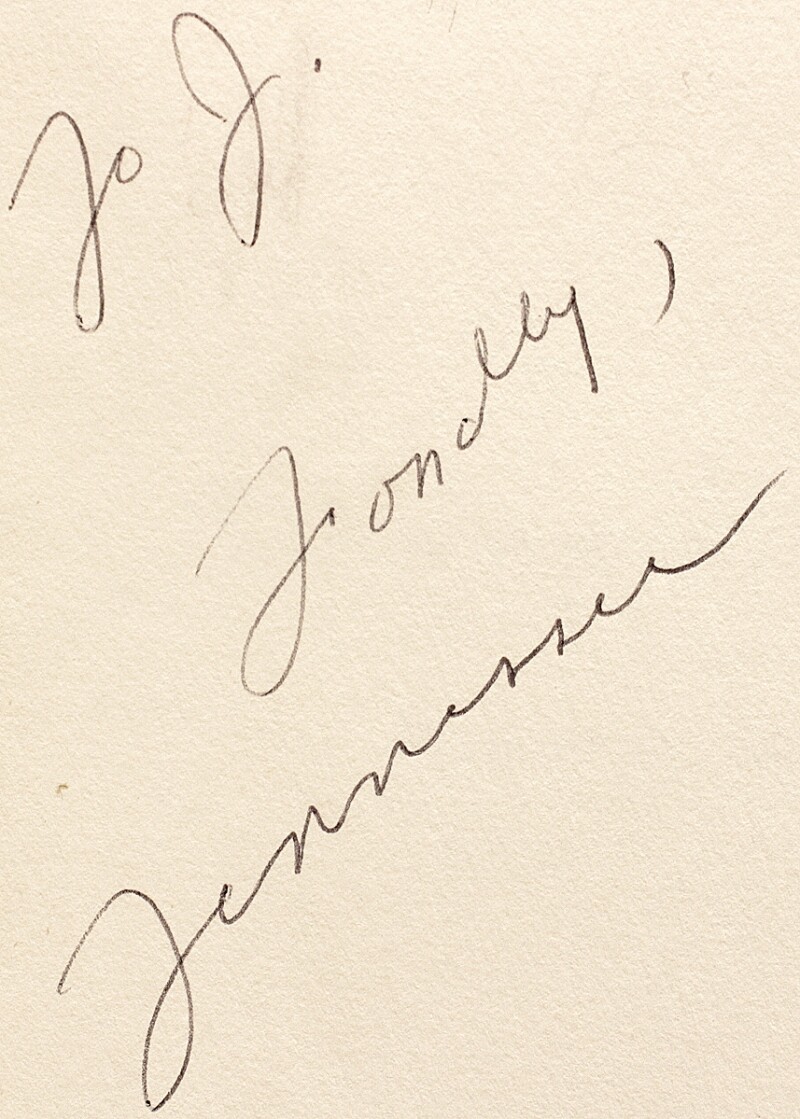 To J.
Fondly,
Tennessee